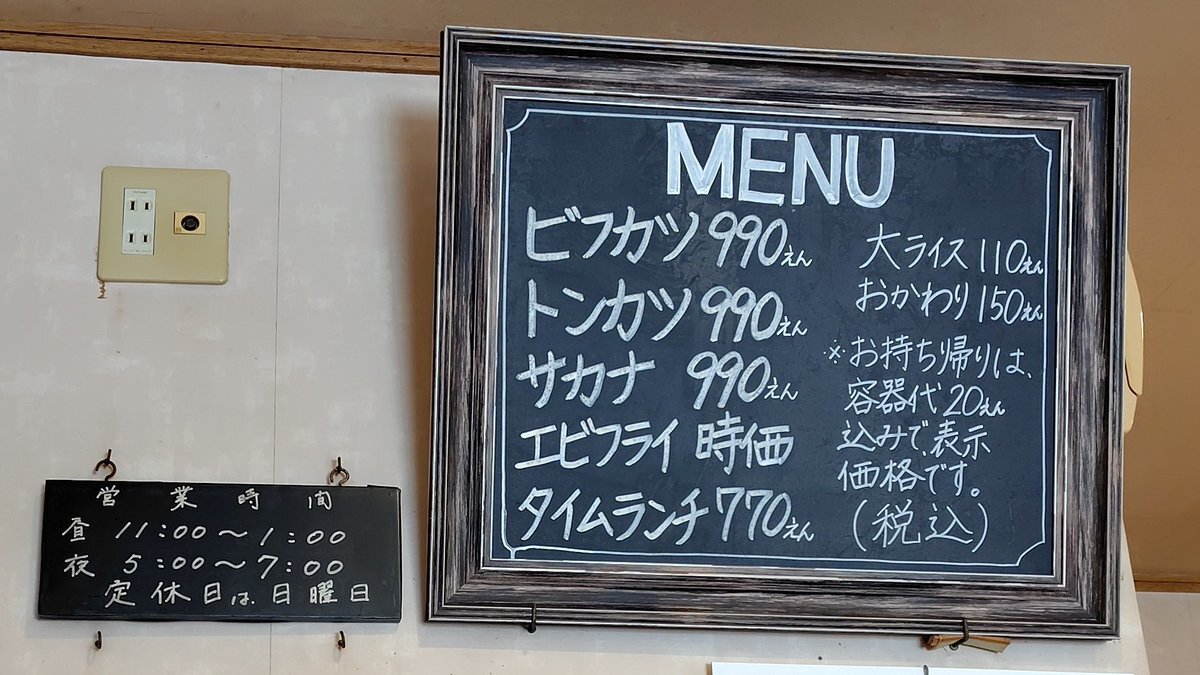 MENU
ビフカツ 990えん
トンカツ 990えん
サカナ 990えん
エビフライ 時価
タイムランチ 770えん
大ライス 110えん
おかわり 150えん
※お持ち帰りは、
容器代20えん
込みで、表示
価格です。
(税込)
営業時間
昼 11:00～1:00
夜 5:00～7:00
定休日は、日曜日